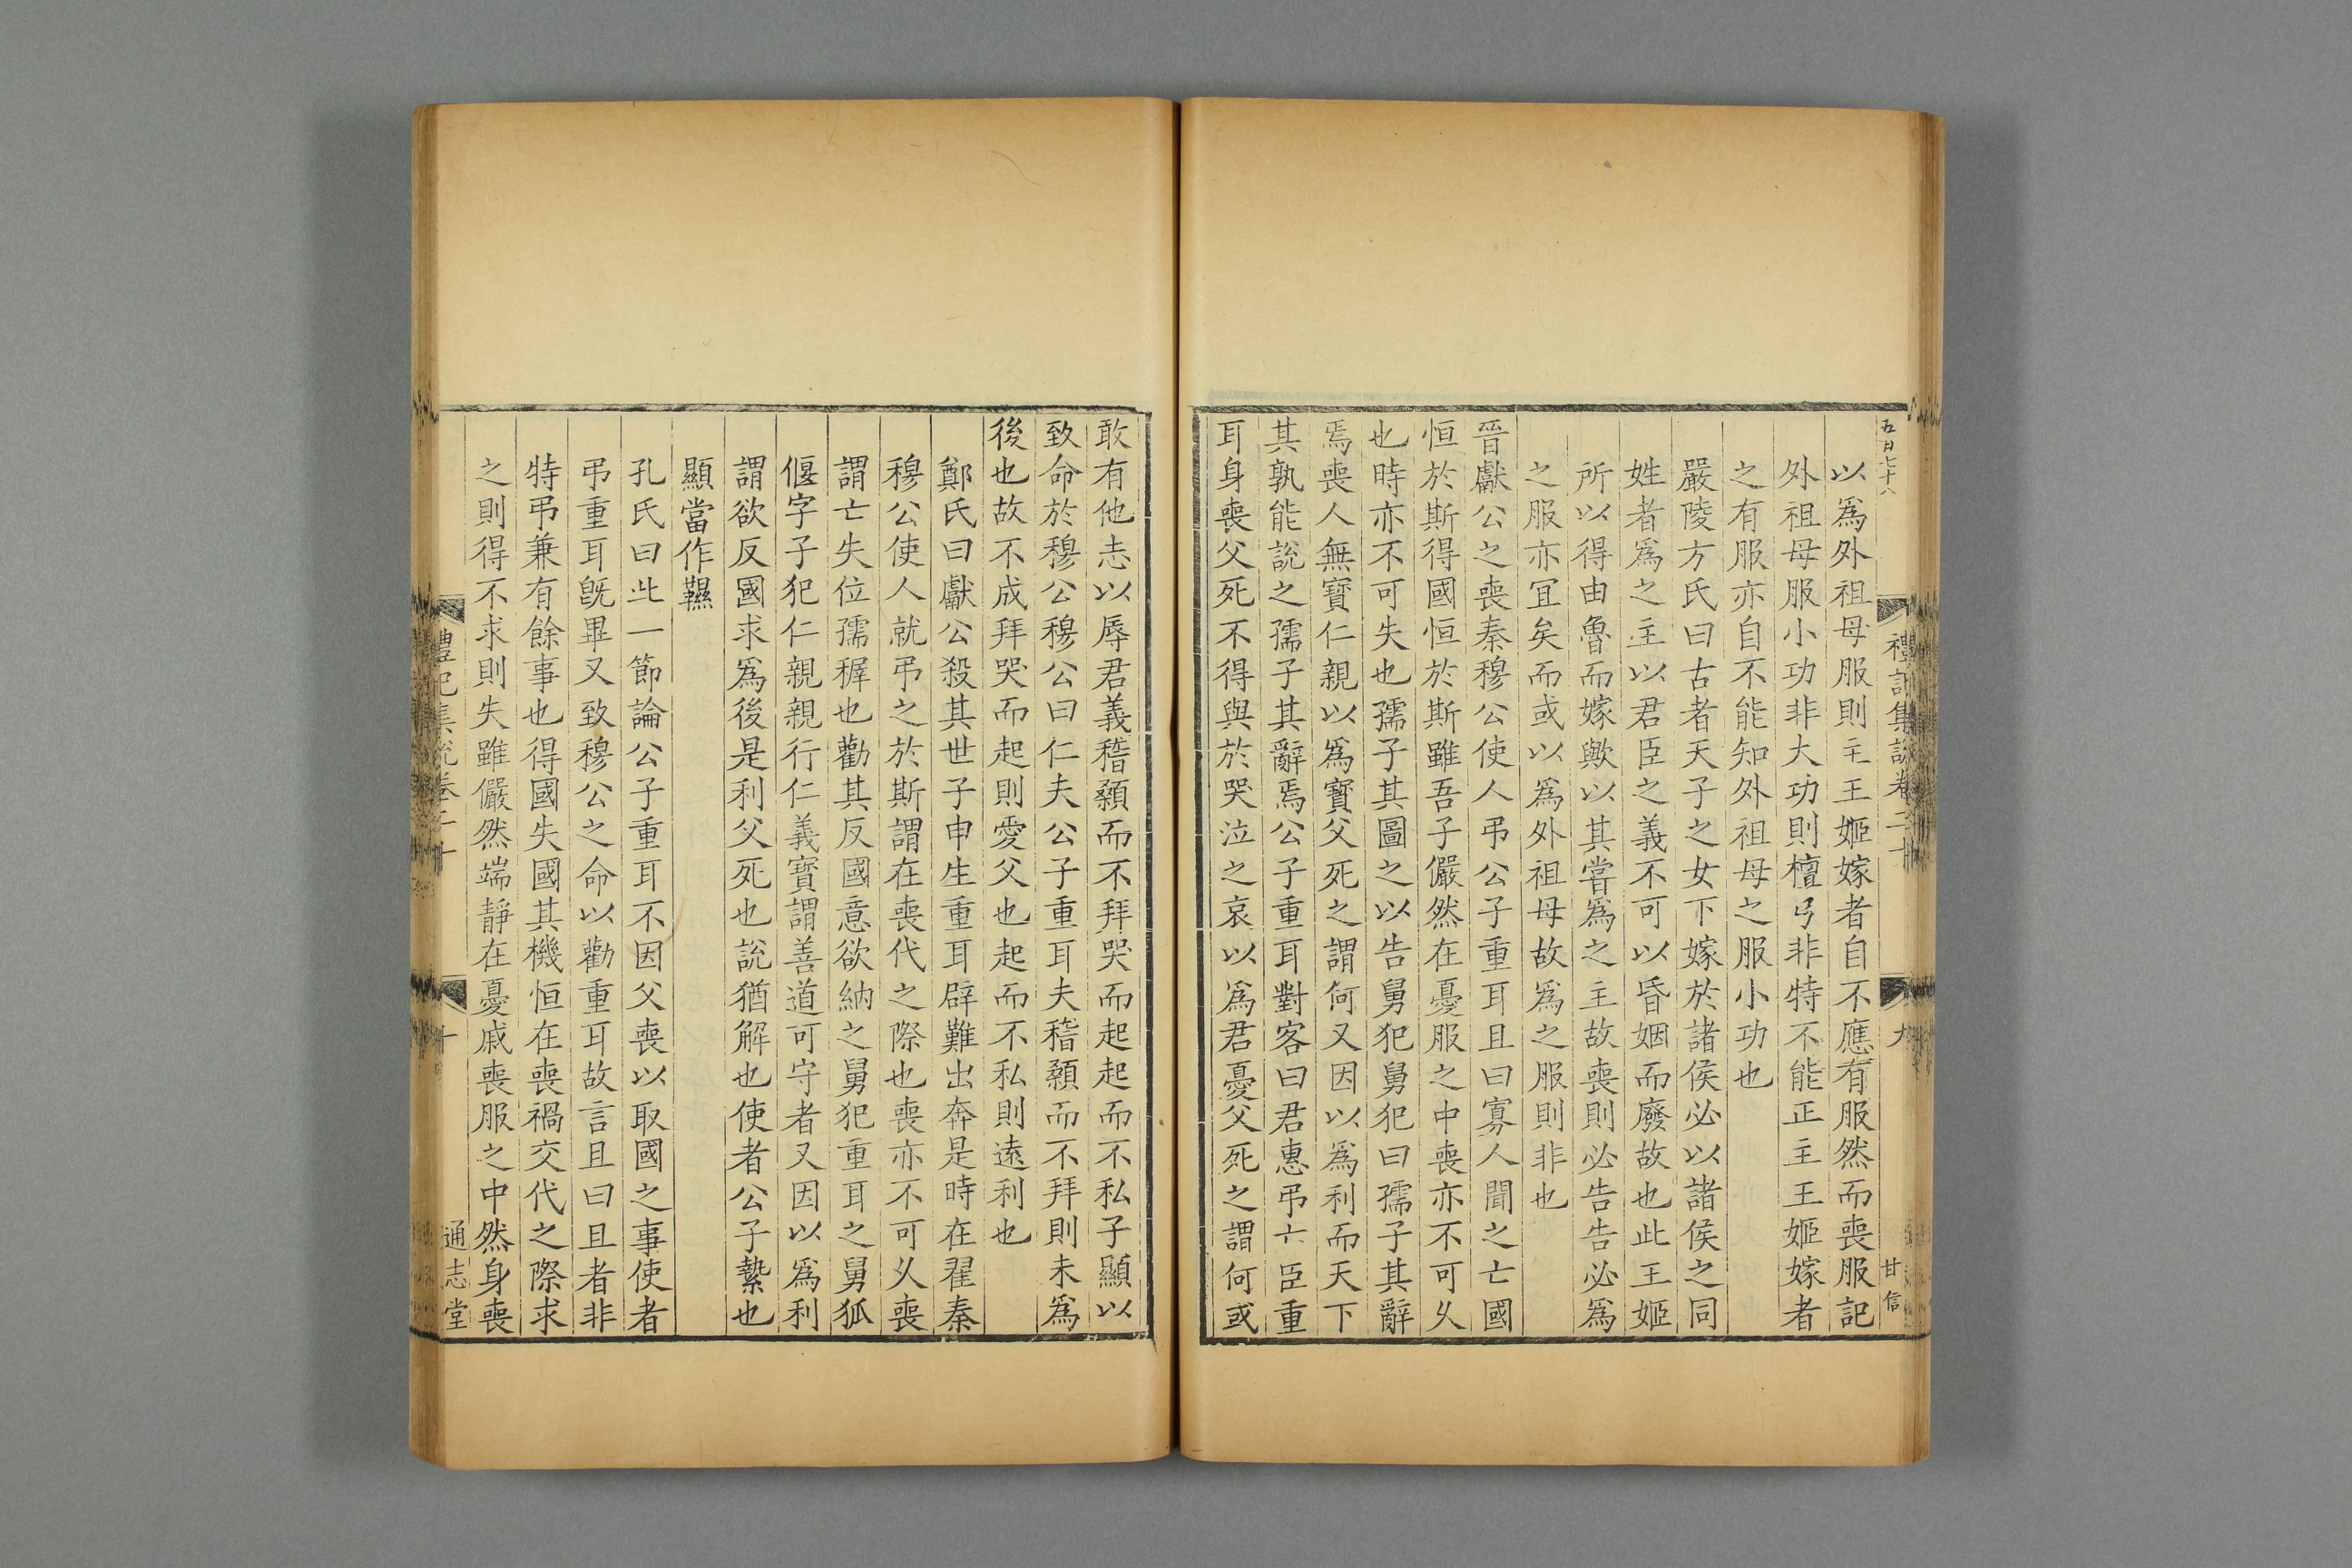 五百七十八
禮記集說卷二十
九
甘信
以爲外祖母服則主王姬嫁者自不應有服然而喪服記
外祖母服小功非大功則檀弓非特不能正主王姬嫁者
之有服亦自不能知外祖母之服小功也
嚴陵方氏曰古者天子之女下嫁於諸侯必以諸侯之同
姓者爲之主以君臣之義不可以昏姻而廢故也此王姬
所以得由魯而嫁歟以其嘗爲之主故喪則必告告必爲
之服亦宜矣而或以爲外祖母故爲之服則非也
晉獻公之喪秦穆公使人弔公子重耳且曰寡人聞之亡國
恒於斯得國恒於斯雖吾子儼然在憂服之中喪亦不可久
也時亦不可失也孺子其圖之以告舅犯舅犯曰孺子其辭
焉喪人無寶仁親以爲寶父死之謂何又因以爲利而天下
其孰能說之孺子其辭焉公子重耳對客曰君惠弔亡臣重
耳身喪父死不得與於哭泣之哀以爲君憂父死之謂何或
敢有他志以辱君義稽顙而不拜哭而起起而不私子顯以
致命於穆公穆公曰仁夫公子重耳夫稽顙而不拜則未爲
後也故不成拜哭而起則愛父也起而不私則遠利也
鄭氏曰獻公殺其世子申生重耳辟難出奔是時在翟秦
穆公使人就弔之於斯謂在喪代之際也喪亦不可久喪
謂亡失位孺稺也勸其反國意欲納之舅犯重耳之舅狐
偃字子犯仁親親行仁義寶謂善道可守者又因以爲利
謂欲反國求爲後是利父死也說猶解也使者公子縶也
顯當作韅
孔氏曰此一節論公子重耳不因父喪以取國之事使者
弔重耳旣畢又致穆公之命以勸重耳故言且曰且者非
特弔兼有餘事也得國失國其機恒在喪禍交代之際求
之則得不求則失雖儼然端靜在憂戚喪服之中然身喪
禮記集說卷二十
十
通志堂